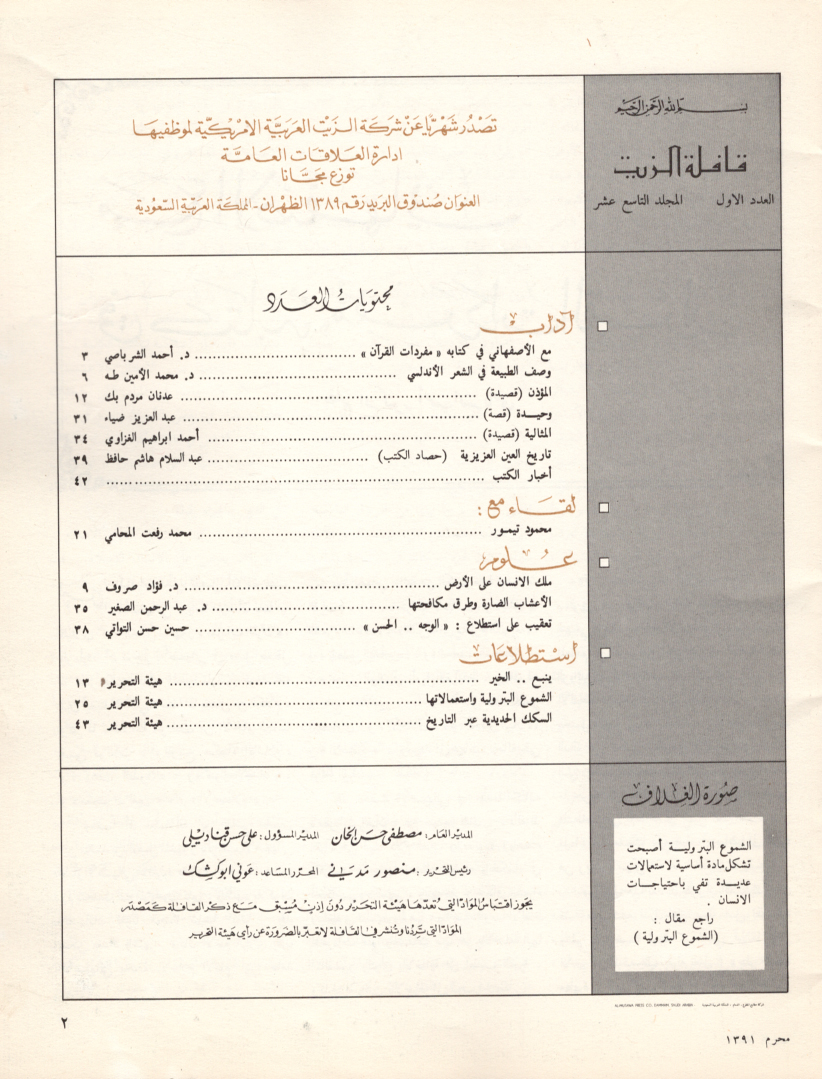 بسم الله الرحمن الرحيم
قافلة الزيت
العدد الاول المجلد التاسع عشر
تصدر شهريًا عن شركة الزيت العربية الامريكية لموظفيها
ادارة العلاقات العامة
توزع مجانا
العنوان صندوق البريد رقم ١٣٨٩ الظهران - المملكة العربية السعودية
محتويات العدد
آداب
مع الأصفهاني في كتابه « مفردات القرآن » د. أحمد الشرباصي ٣
وصف الطبيعة في الشعر الأندلسي د. محمد الأمين طه ٦
المؤذن (قصيدة) عدنان مردم بك ١٢
وحيدة (قصة) عبد العزيز ضياء ٣١
المثالية (قصيدة) أحمد ابراهيم الغزاوي ٣٤
تاريخ العين العزيزية (حصاد الكتب) عبد السلام هاشم حافظ ٣٩
أخبار الكتب ٤٢
لقاء مع :
محمود تيمور محمد رفعت المحامي ٢١
علوم
ملك الانسان على الأرض د. فؤاد صروف ٩
الأعشاب الضارة وطرق مكافحتها د. عبد الرحمن الصغير ٣٥
تعقيب على استطلاع : « الوجه .. الحسن » حسين حسن التواتي ٣٨
استطلاعات
ينبع .. الخير هيئة التحرير ١٣
الشموع البترولية واستعمالاتها هيئة التحرير ٢٥
السكك الحديدية عبر التاريخ هيئة التحرير ٤٣
صورة الغلاف
الشموع البترولية أصبحت
تشكل مادة أساسية لاستعمالات
عديدة تفي باحتياجات
الانسان .
راجع مقال :
(الشموع البترولية)
المدير العام : مصطفى حسن الخان المدير المسؤول : علي حسن قناديلي
رئيس التحرير : منصور مدني المحرر المساعد : عوني ابوكشك
يجوز اقتباس المواد التي تعدها هيئة التحرير دون إذن مسبق مع ذكر القافلة كمصدر
المواد التي تردنا وتنشر في القافلة لا تعبر بالضرورة عن رأي هيئة التحرير
٢
محرم ١٣٩١